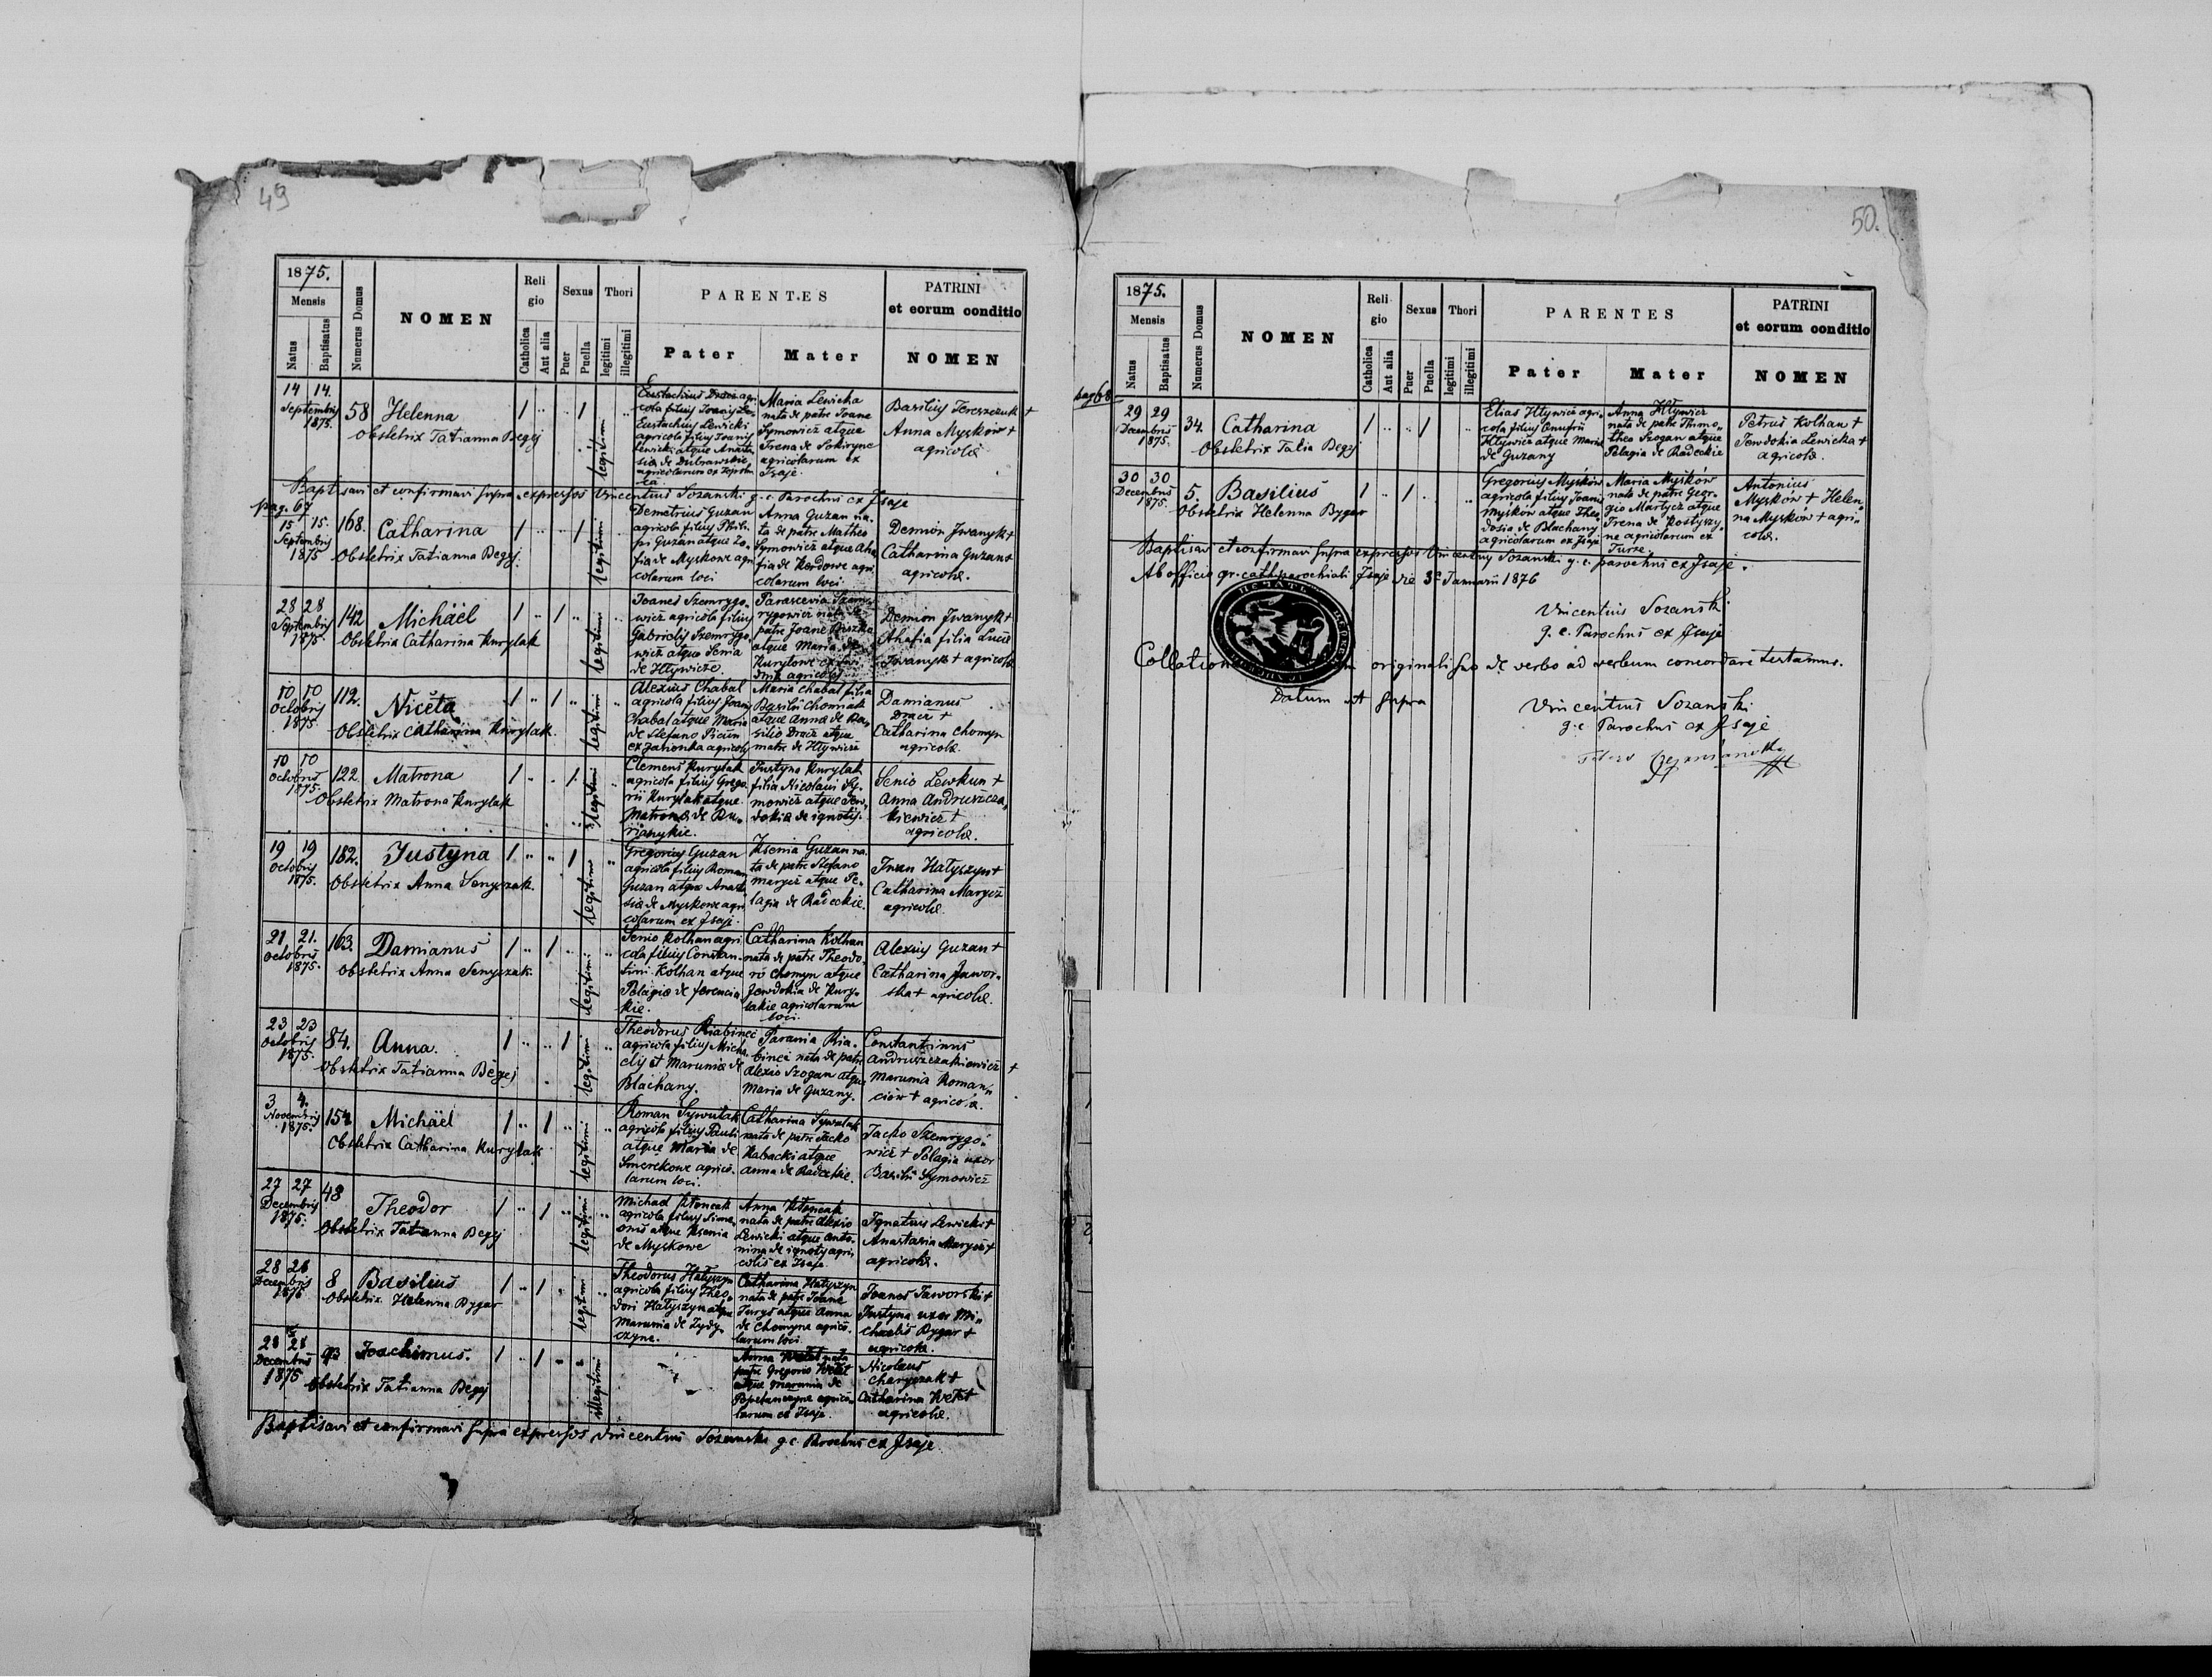 49
1875.
Mensis
Natus
Baptisatus
Numerus Domus
NOMEN
Religio
Catholica
Aut alia
Sexus
Puer
Puella
Thori
legitimi
illegitimi
PARENTES
Pater
Mater
PATRINI
et eorum conditio
NOMEN
14 14.
Septembris
1875.
58
Helenna
Obstetrix Tatianna Begej
legitimi
Eustachius Lewicki
agricola filius Joanis
Lewicki atque Anasta
sia de Dubrawskie
agricolarum ex
Maria Lewicka
nata de patre Joane
Symowicz atque
Irena de
agricolarum ex
Isaje.
Basilius Tereszczuk +
Anna Mysków +
agricolæ
Baptisavi et confirmavi supra expressos Vincentius Sozanski g. c. Parochus ex Isaje
pag. 67
15 15.
Septembris
1875
168.
Catharina
Obstetrix Tatianna Begej.
legitimi
Demetrius Guzan
agricola filius Phili-
pi Guzan atque Zo-
fia de Myskowe agri
colarum loci
Anna Guzan na-
ta de patre Matheo
Symowicz atque Aha
fia de Kordowe agri
colarum loci.
Demion Iwanyk +
Catharina Guzan +
agricolæ.
28 28
Septembris
1875.
142
Michäel
Obstetrix Catharina Kurylak
legitimi
Joanes Szemrygo-
wicz agricola filius
Gabrielis Szemrygo-
wicz atque Senia
de Hlywicze.
Parascevia Szem
rygowicz nata de
patre Joane
atque Maria de
Kurylowe
agricolis
Demion Iwanyk +
Ahafia filia Lucæ
Iwanyk + agricolæ
10 10
Octobris
1875.
112.
Niceta
Obstetrix Catharina Kurylak.
legitimi
Alexius Chabal
agricola filius Joanis
Chabal atque Maria
de Stefano
ex Jasionka agricolis
Maria Chabal filia
Basilii Chomiak
atque Anna de Ba-
silio Dracz atque
matre de Hlywicz
Damianus
Dracz +
Catharina Chomyn
agricolæ.
10 10
Octobris
1875.
122.
Matrona
Obstetrix Matrona Kurylak
legitimi
Clemens Kurylak
agricola filius Grego-
rii Kurylak atque
Matrona de
Justyna Kurylak
filia Nicolaus Sy-
mowicz atque Jew-
dokia de ignotis.
Senio Lewkun +
Anna Andruszcza-
kiewicz +
agricolæ.
19 19
Octobris
1875.
182.
Justyna
Obstetrix Anna Senyszak.
legitimi
Gregorius Guzan
agricola filius Roman
Guzan atque Anasta
sia de Myskowe agri
colarum ex Isaje.
Ksenia Guzan na-
ta de patre Stefano
Marycz atque Pe-
lagia de Radeckie.
Iwan Hatyszyn +
Catharina Marycz
agricolæ.
21 21.
Octobris
1875.
163.
Damianus
Obstetrix Anna Senyszak.
legitimi
Senio Kolhan agri
cola filius Constan-
tini Kolhan atque
Pelagia de Jerencia
kie.
Catharina Kolhan
nata de patre Theodo-
ro Chomyn atque
Jewdokia de Kury-
lakie agricolarum
loci.
Alexius Guzan +
Catharina Jawor-
ska + agricolæ.
23 23
Octobris
1875.
84.
Anna.
Obstetrix Tatianna Begej
legitimi
Theodorus Riabinec
agricola filius Micha
elis et Marunia de
Blachany.
Parania Ria-
binec nata de patre
Alexio Szogan atque
Maria de Guzany.
Constantinus
Andruszczakiewicz +
Marunia Roman-
ciow + agricolæ.
3 4.
Novembris
1875.
Michäel
Obstetrix Catharina Kurylak
legitimi
Roman Sywulak
agricola filius Pauli
atque Maria de
Smerekowe agrico-
larum loci.
Catharina Sywulak
nata de patre Jacko
Kabacki atque
Anna de Radeckie.
Jacko Szemrygo-
wicz + Pelagia uxor
Basilii Symowicz
27 27
Decembris
1875.
48
Theodor
Obstetrix Tatianna Begej
legitimi
Michael Klonczak
agricola filius Sime-
onis atque Ksenia
de Myskowe
Anna Klonczak
nata de patre Alexio
Lewicki atque Anto-
nina de ignotis agri-
colis ex Isaje
Ignatius Lewicki +
Anastasia Marycz +
agricolæ.
28 28
Decembris
1875
8
Basilius
Obstetrix Helenna Bygar
legitimi
Theodorus Hatyszyn
agricola filius Theo-
dori Hatyszyn atque
Marunia de Zydy-
czyne.
Catharina Hatyszyn
nata de patre Joane
Jurys atque Anna
de Chomyne agrico-
larum loci.
Joanes Jaworski +
Justyna uxor Mi-
chaelis Bygar +
agricolæ.
28 28
Decembris
1875
93
Joachimus.
Obstetrix Tatianna Begej
illegitimi
Anna Wetst nata
patre Gregorio Wetst
atque Marunia de
agrico-
larum ex Isaje.
Nicolaus
Charyszak +
Catharina Wetst
agricolæ.
Baptisavi et confirmavi supra expressos Vincentius Sozanski g. c. Parochus ex Isaje
50.
1875.
Mensis
Natus
Baptisatus
Numerus Domus
NOMEN
Religio
Catholica
Aut alia
Sexus
Puer
Puella
Thori
legitimi
illegitimi
PARENTES
Pater
Mater
PATRINI
et eorum conditio
NOMEN
pag 68
29 29
Decembris
1875.
34.
Catharina
Obstetrix Tatia Begej
Elias Hlywicz agri-
cola filius Onufrii
Hlywicz atque Maria
de Guzany
Anna Hlywicz
nata de patre Thimo-
theo Szogan atque
Pelagia de Radeckie
Petrus Kolhan +
Jewdokia Lewicka +
agricolæ.
30 30
Decembris
1875.
5.
Basilius
Obstetrix Helenna Bygar
Gregorius Mysków
agricola filius Joanis
Mysków atque Theo
dosia de Blachany
agricolarum ex Isaje
Maria Mysków
nata de patre Geor-
gio Martycz atque
Irena de Kostyszy-
ne agricolarum ex
Turze.
Antonius
Mysków + Helen-
na Mysków + agri-
colæ.
Baptisavi et confirmavi supra expressos Vincentius Sozanski g. c. parochus ex Isaje.
Ab officio gr. cath. parochiali Isaje die 3º Januarii 1876
Vincentius Sozanski
g. c. Parochus ex Isaje
originali suo de verbo ad verbum concordare testamur.
Datum ut supra
Vincentius Sozanski
g. c. Parochus ex Isaje